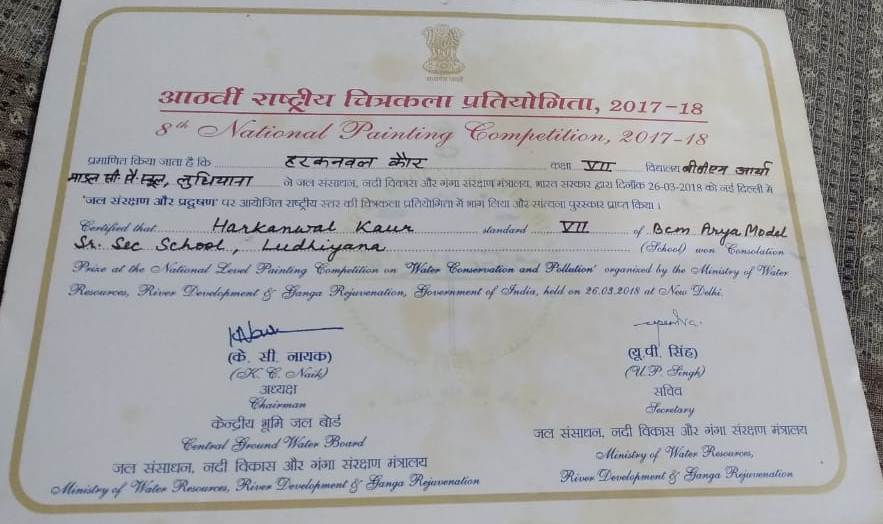 सत्यमेव जयते
आठवीं राष्ट्रीय चित्रकला प्रतियोगिता, 2017-18
8th National Painting Competition, 2017-18
प्रमाणित किया जाता है कि हरकनवल कौर कक्षा VII विद्यालय बीसीएम आर्या
माडल सी. सै. स्कूल, लुधियाना ने जल संसाधन, नदी विकास और गंगा संरक्षण मंत्रालय, भारत सरकार द्वारा दिनाँक 26-03-2018 को नई दिल्ली में
'जल संरक्षण और प्रदूषण' पर आयोजित राष्ट्रीय स्तर की चित्रकला प्रतियोगिता में भाग लिया और सांत्वना पुरस्कार प्राप्त किया।
Certified that Harkanwal Kaur standard VII of Bcm Arya Model
Sr. Sec School, Ludhiyana (School) won Consolation
Prize at the National Level Painting Competition on 'Water Conservation and Pollution' organized by the Ministry of Water
Resources, River Development & Ganga Rejuvenation, Government of India, held on 26.03.2018 at New Delhi.
(के. सी. नायक)
(K. C. Naik)
अध्यक्ष
Chairman
केन्द्रीय भूमि जल बोर्ड
Central Ground Water Board
जल संसाधन, नदी विकास और गंगा संरक्षण मंत्रालय
Ministry of Water Resources, River Development & Ganga Rejuvenation
(यू.पी. सिंह)
(U.P. Singh)
सचिव
Secretary
जल संसाधन, नदी विकास और गंगा संरक्षण मंत्रालय
Ministry of Water Resources,
River Development & Ganga Rejuvenation